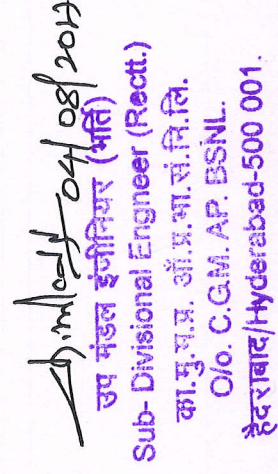 04/08/2017
उप मंडल इंजीनियर (भर्ति)
Sub- Divisional Engneer (Rectt.)
का.मु.म.प्र. ऑ.प्र.भा.सं.नि.लि.
O/o. C.G.M. AP. BSNL.
हैदराबाद/Hyderabad-500 001.